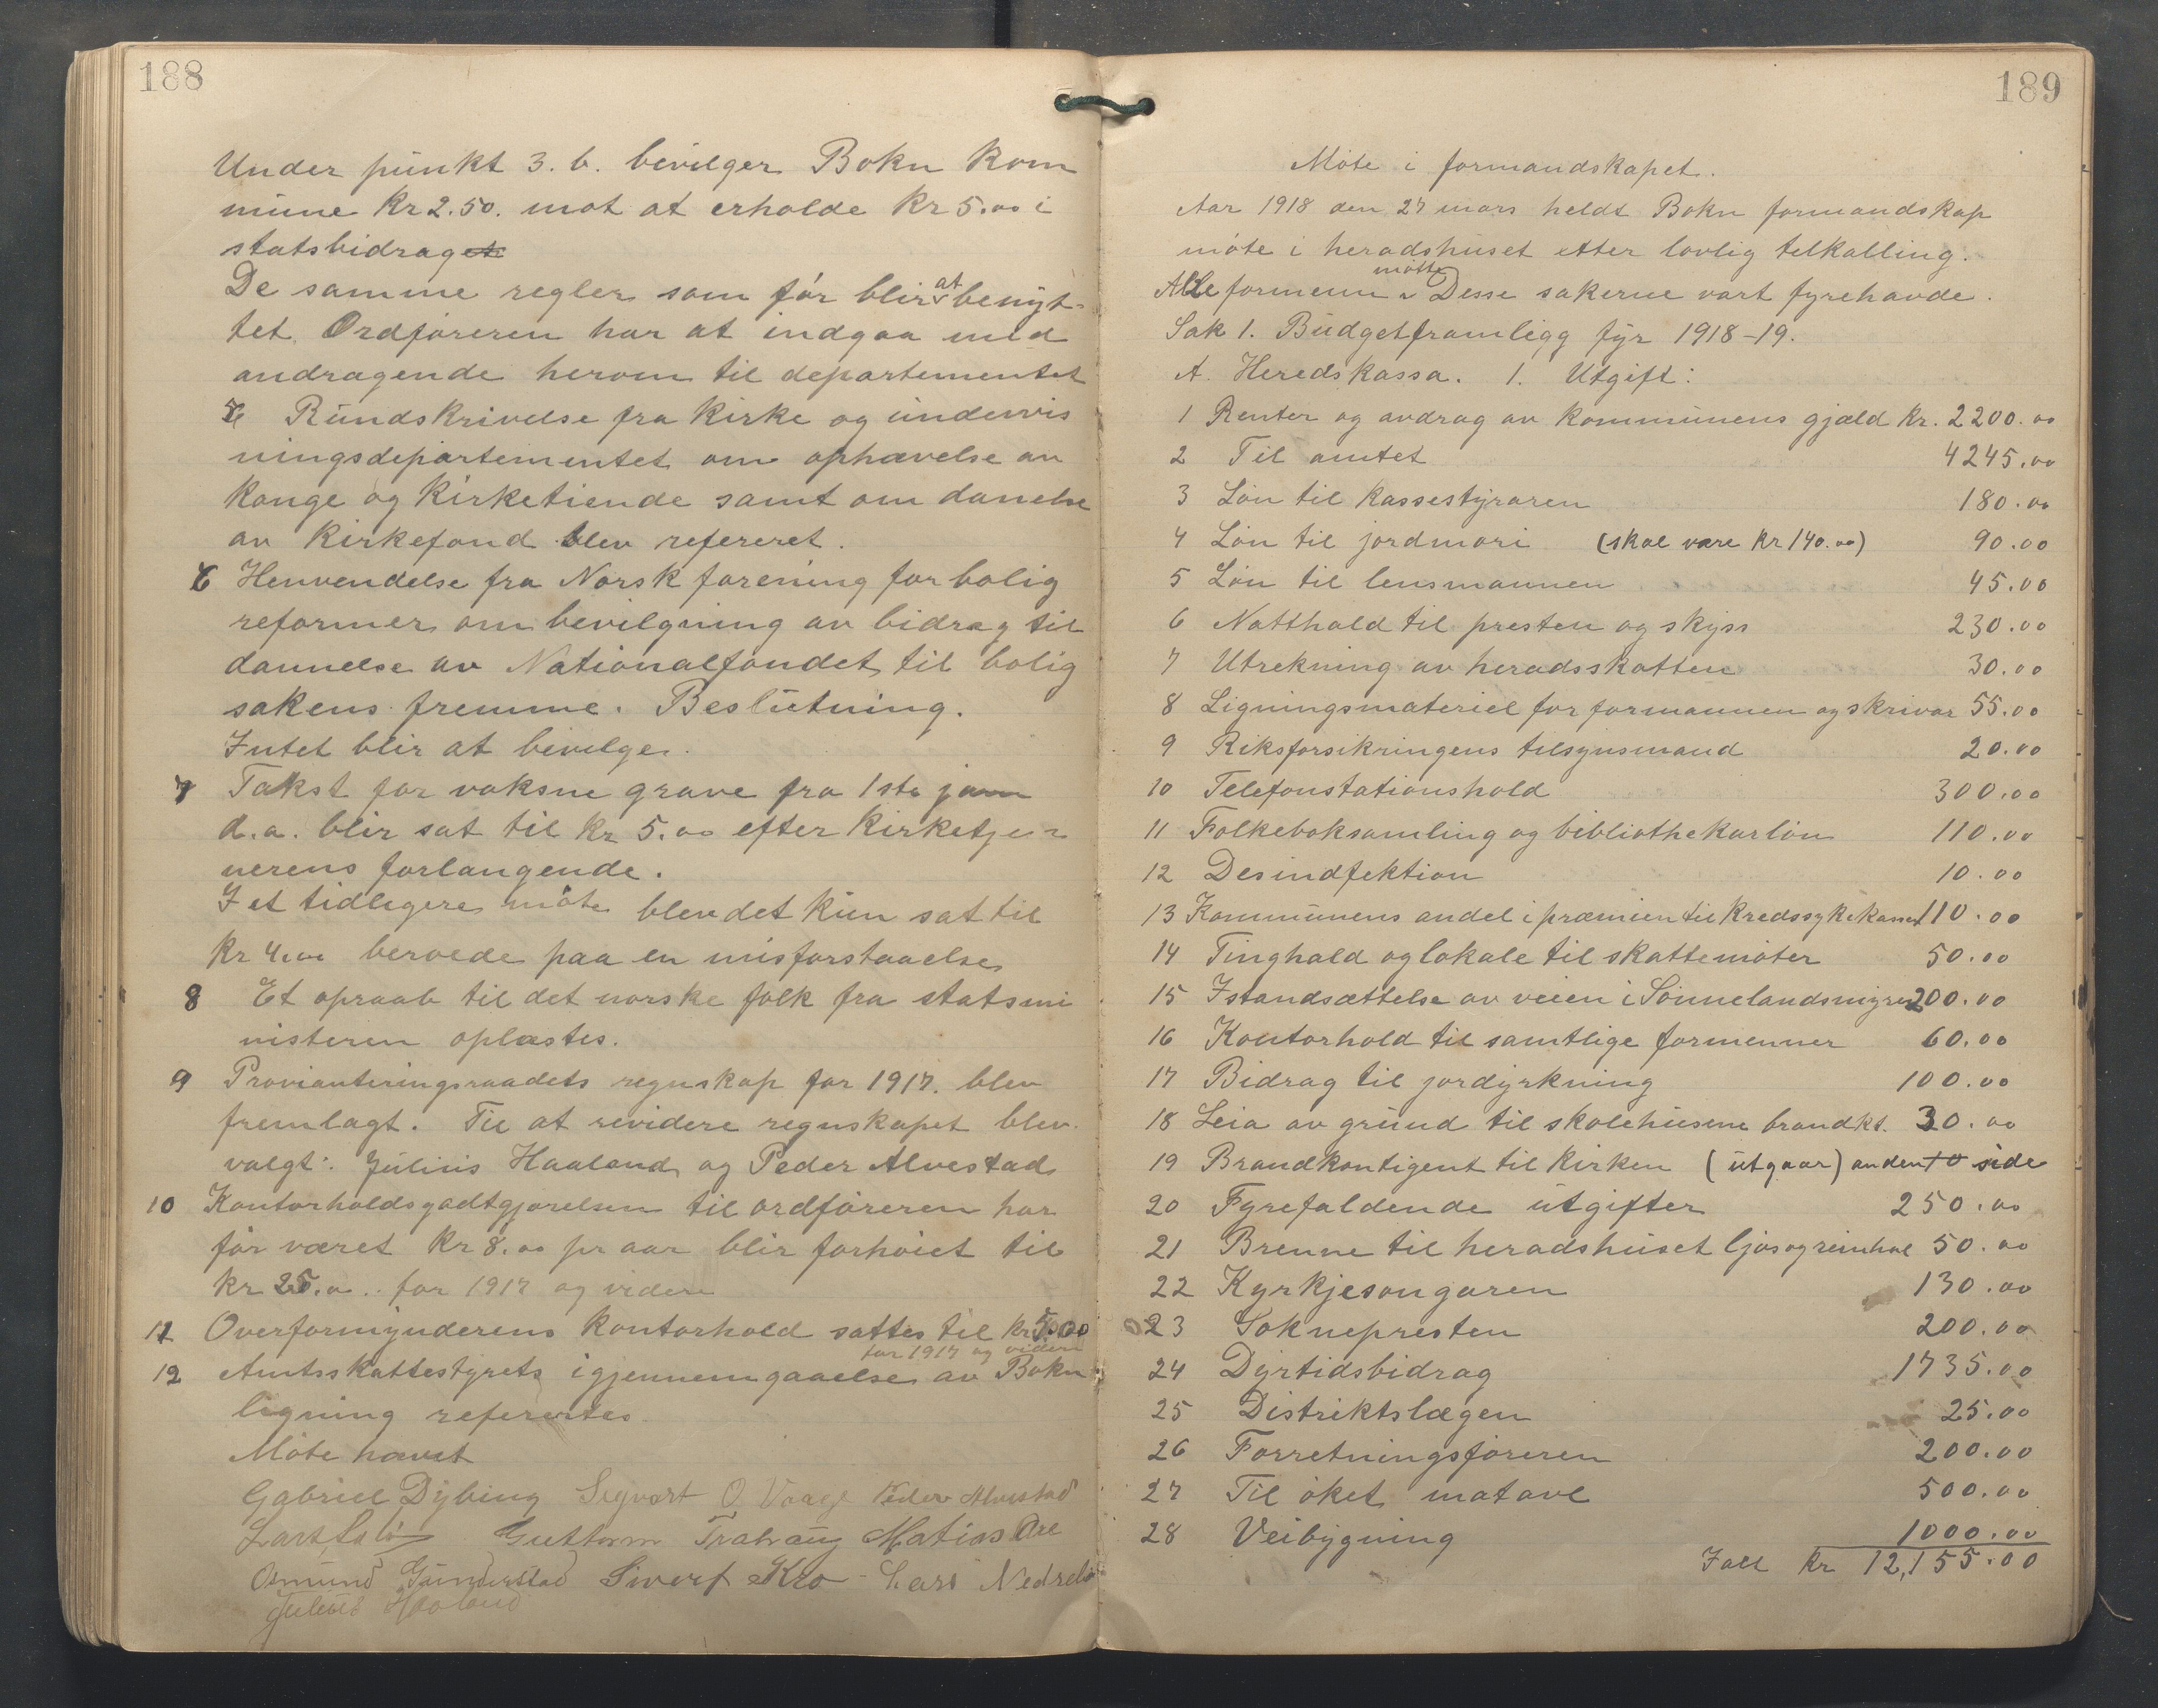 188
Under punkt 3. b. bevilger Bokn kom
mune Kr 2.50. mot at erholde Kr 5.00 i
statsbidraget
De samme regler som før blir at benyt-
tet. Ordføreren har at indgaa med
andragende herom til departementet
Rundskrivelse fra Kirke og undervis
ningsdepartementet om ophævelse av
Konge og Kirketiende samt om danelse
av Kirkefond blev refereret.
6 Henvendelse fra Norsk forening for bolig
reformer om bevilgning av bidrag til
dannelse av Nationalfondet til bolig
sakens fremme. Beslutning.
Intet blir at bevilge.
7 Takst for voksne grave fra 1ste jan
d.a. blir sat til Kr 5.00 efter Kirketje-
nerens forlangende.
I et tidligere møte blev det kun sat til
Kr 4.00 beroede paa en misforstaaelse
8 Et opraab til det norske folk fra statsmi
nisteren oplæstes.
9 Provianteringsraadets regnskap for 1917. blev
fremlagt. Til at revidere regnskapet blev
valgt: Julius Haaland og Peder Alvestad
10 Kontorholdsgodtgjørelsen til ordføreren har
før været Kr 8.00 pr aar blir forhøiet til
Kr 25.00.. for 1917 og videre
11 Overformynderens Kontorhold sattes til Kr 5.00
for 1917 og videre
12 Amtsskattestyrets igjennemgaaelse av Bokn
ligning referertes.
Møte hævet
Gabriel Dybing Segvart O Vaage Peder Alvestad
Guttorm Matias Are
Osmund Gunderstad Sivert Kro Lars Nedrebø
Julius Haaland
189
Møte i formandskapet.
Aar 1918 den 27 mars heldt Bokn formandskap
møte i heradshuset etter lovlig tilkalling.
Alle formenn møtte. Desse sakerne vart fyrehavde.
Sak 1. Budgetframligg fyr 1918-19.
A. Heredskassa. 1. Utgift:
1 Renter og avdrag av Kommunens gjæld Kr. 2200.00
2 Til amtet 4245.00
3 Løn til Kassestyraren 180.00
4 Løn til jordmori (skal være Kr 140.00) 90.00
5 Løn til lensmannen 45.00
6 Natthald til presten og skyss 230.00
7 Utrekning av heradsskatten 30.00
8 Ligningsmateriel for formannen og skrivar 55.00
9 Riksforsikringens tilsynsmand 20.00
10 Telefonstationshold 300.00
11 Folkeboksamling og bibliothekarløn 110.00
12 Desindfektion 10.00
13 Kommunens andel i præmien til Kredssykekassen 110.00
14 Tinghald og lokale til skattemøter 50.00
15 Istandsættelse av veien i Sønnelandsmyren 200.00
16 Kontorhold til samtlige formenner 60.00
17 Bidrag til jordyrkning 100.00
18 Leia av grund til skolehusene brandkt. 30.00
19 Brandkontigent til Kirken (utgaar) anden side
20 Fyrefaldende utgifter 250.00
21 Brenne til heradshuset ljos og reinhal 50.00
22 Kyrkjesongaren 130.00
23 Soknepresten 200.00
24 Dyrtidsbidrag 1735.00
25 Distriktslægen 25.00
26 Forretningsføreren 200.00
27 Til øket matavl 500.00
28 Veibygning 1000.00
Ialt Kr 12,155.00